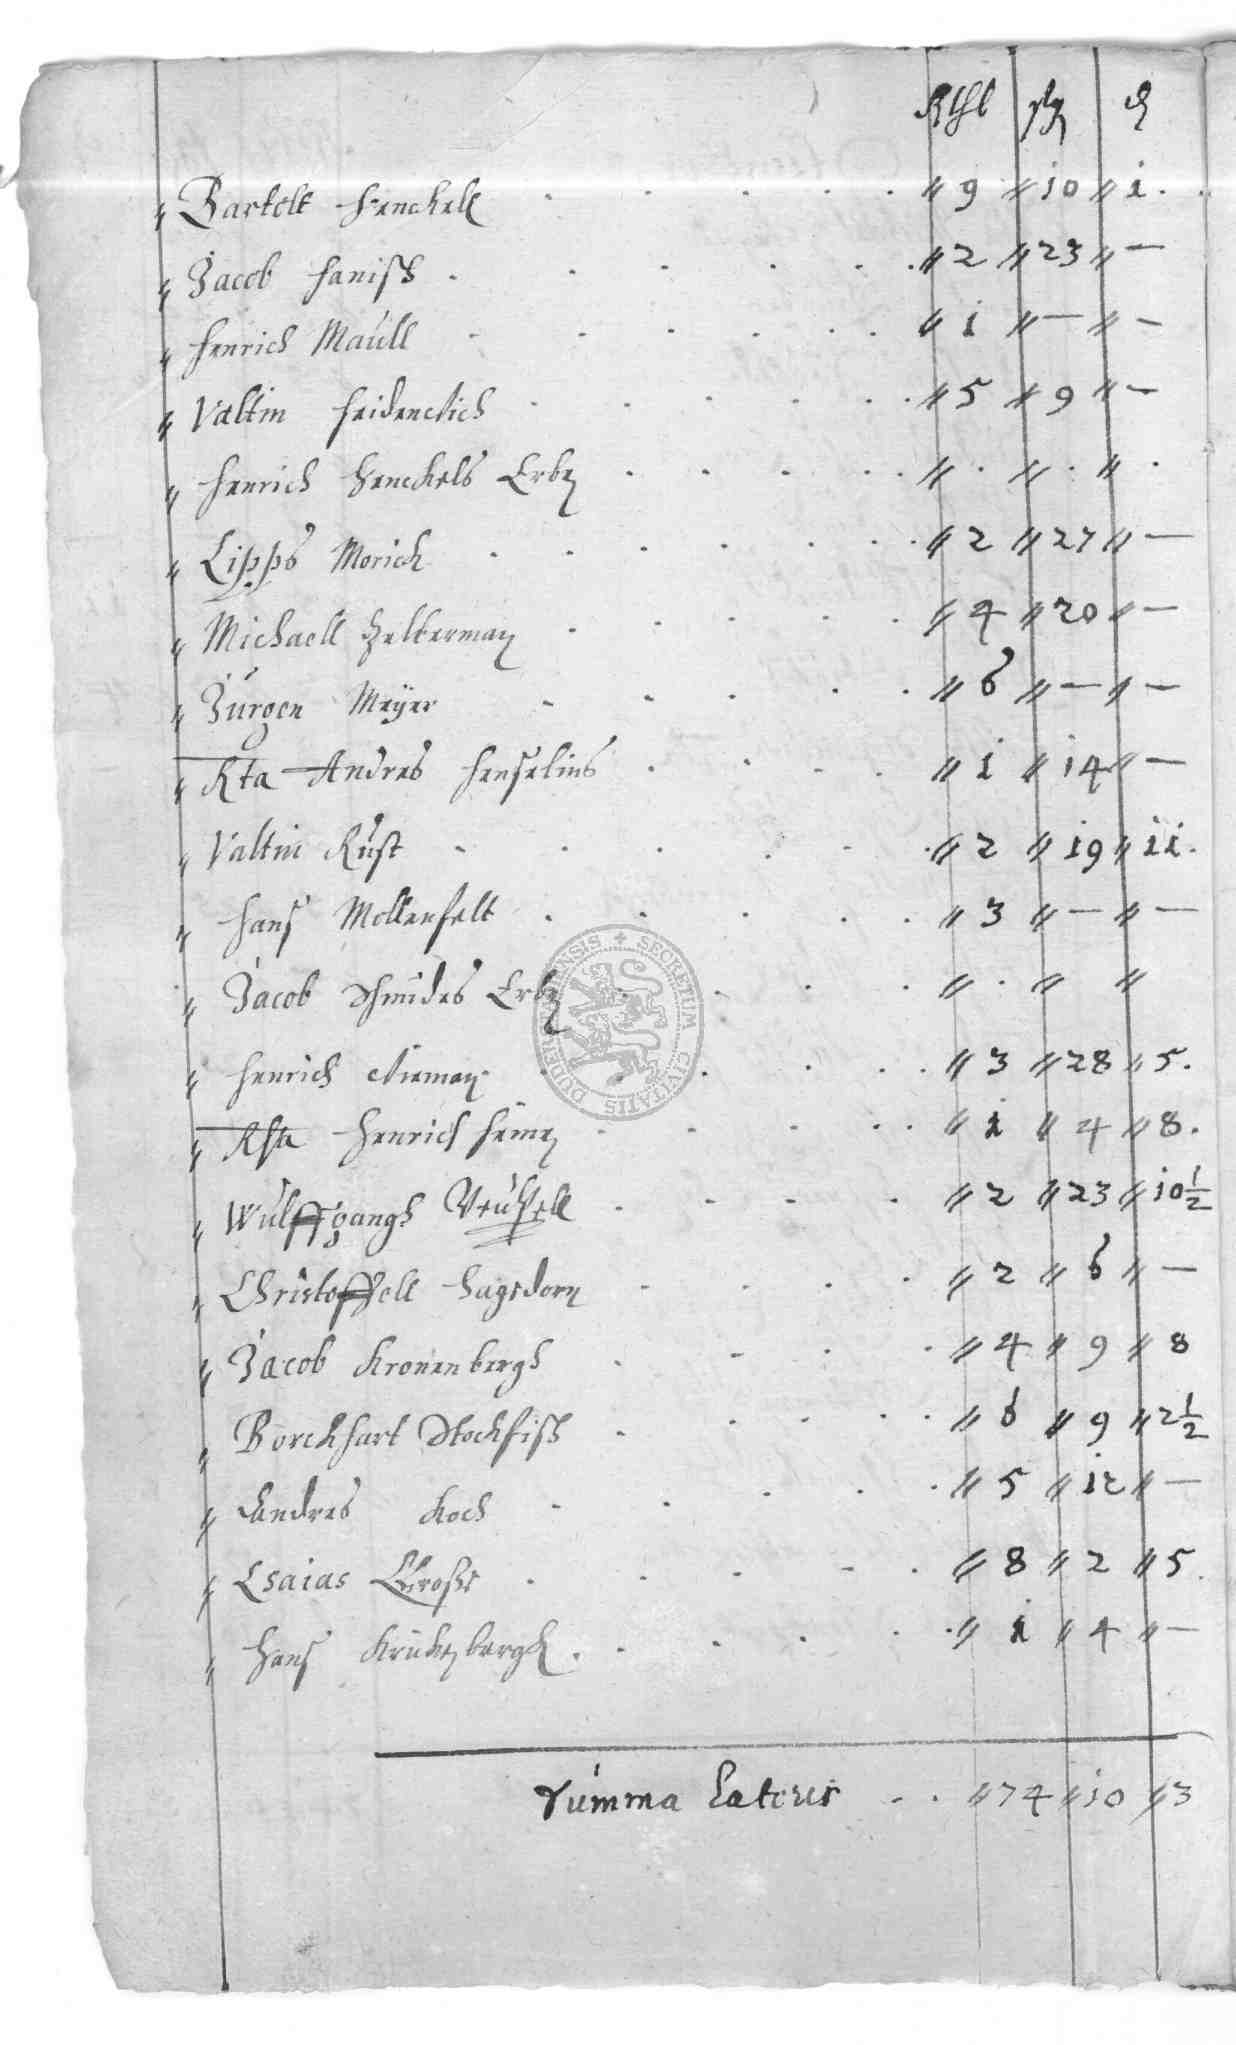 Rthl ßg ₰
" Bartelt Henckell . . . . . " 9 " 10 " 1 .
" Jacob Hanisch . . . . . . " 2 " 23 " —
" Henrich Maull . . . . . . " 1 " — " —
" Valtin Heidenrich . . . . . " 5 " 9 " —
" Henrich Henckels Erben . . . . . " . " . " .
" Lipps Morich . . . . . . " 2 " 27 " —
" Michaell Helterman . . . . . " 4 " 20 " —
" Jürgen Meyer . . . . . " 6 " — " —
" Rta Andres Henselius . . . . " 1 " 14 " —
" Valtin Rust . . . . . . " 2 " 19 " 11 .
" Hans Mollenfelt . . . . . " 3 " — " —
" Jacob Schmides Erben . . . . " . " "
" Henrich Nieman . . . . . " 3 " 28 " 5 .
" Rta Henrich . . . . . " 1 " 4 " 8 .
" Wulffgangh . . . . " 2 " 23 " 10 ½
" Christoffell Hagedorn . . . . " 2 " 6 " —
" Jacob Kronenbergh . . . . " 4 " 9 " 8
" Borckhart Stockfisch . . . . . " 6 " 9 " 2 ½
" Andres Koch . . . . . " 5 " 12 " —
" Esaias Grosse . . . . . " 8 " 2 " 5 .
" Hans Krukenbergk . . . . . " 1 " 4 " —
Summa Lateris . . " 74 " 10 " 3
SECRETUM CIVITATIS DUDERSTADENSIS